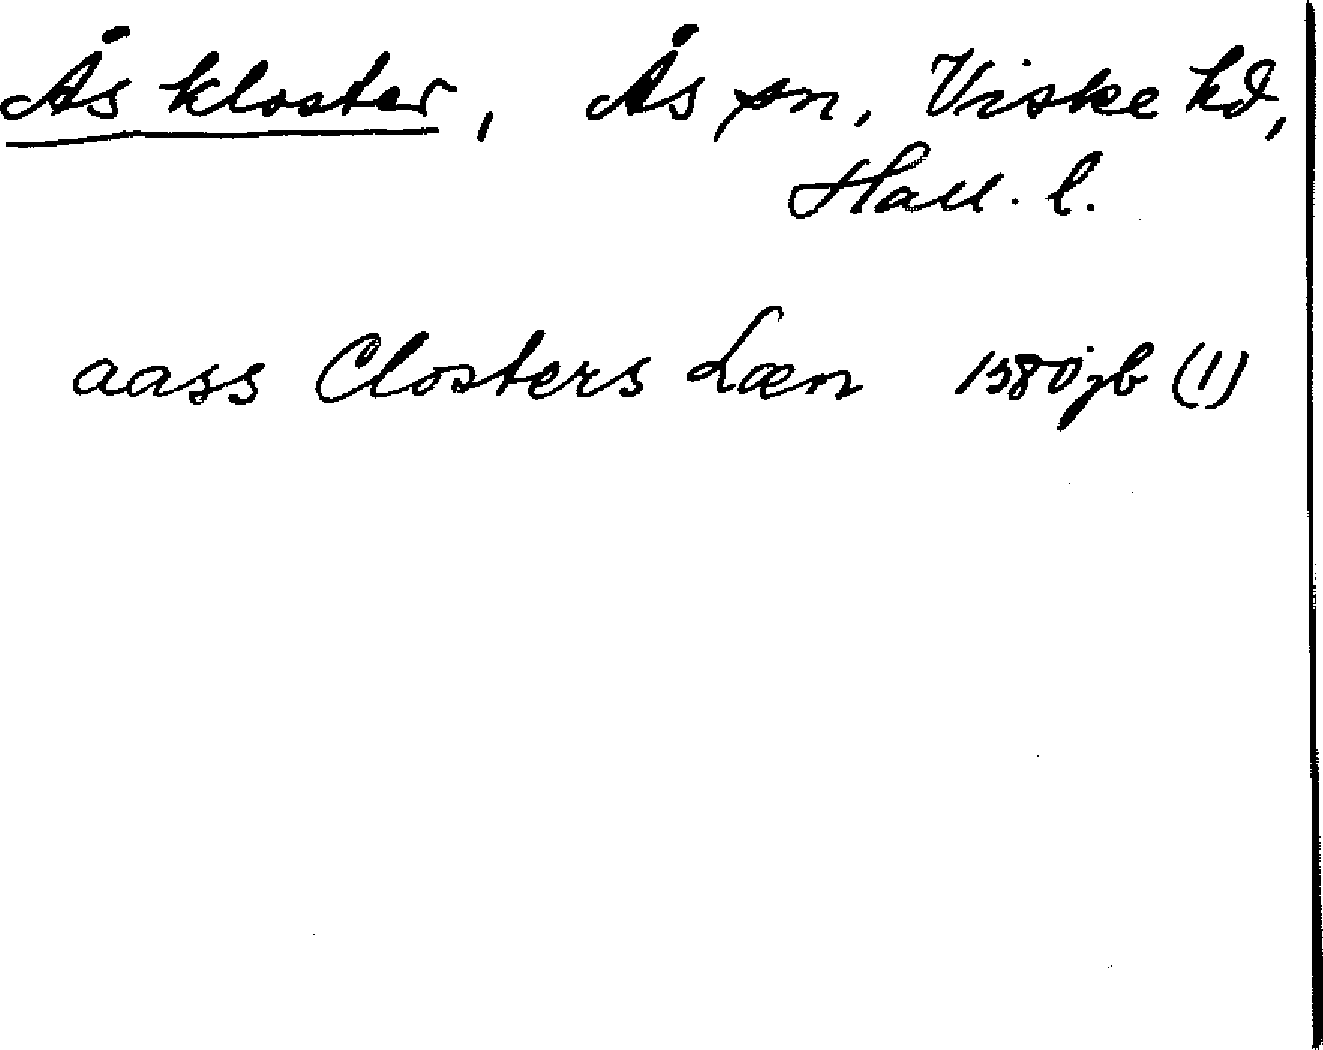 Ås kloster, Ås sn, Viske hd,
Hall. l.
aass Closters Læn 1580 jb (1)